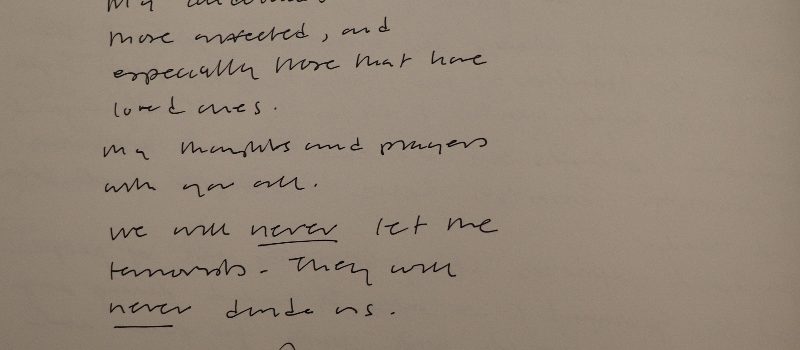 My
more affected, and
especially those that have
loved ones.
My thoughts and prayers
with you all.
We will never let the
terrorists. They will
never divide us.